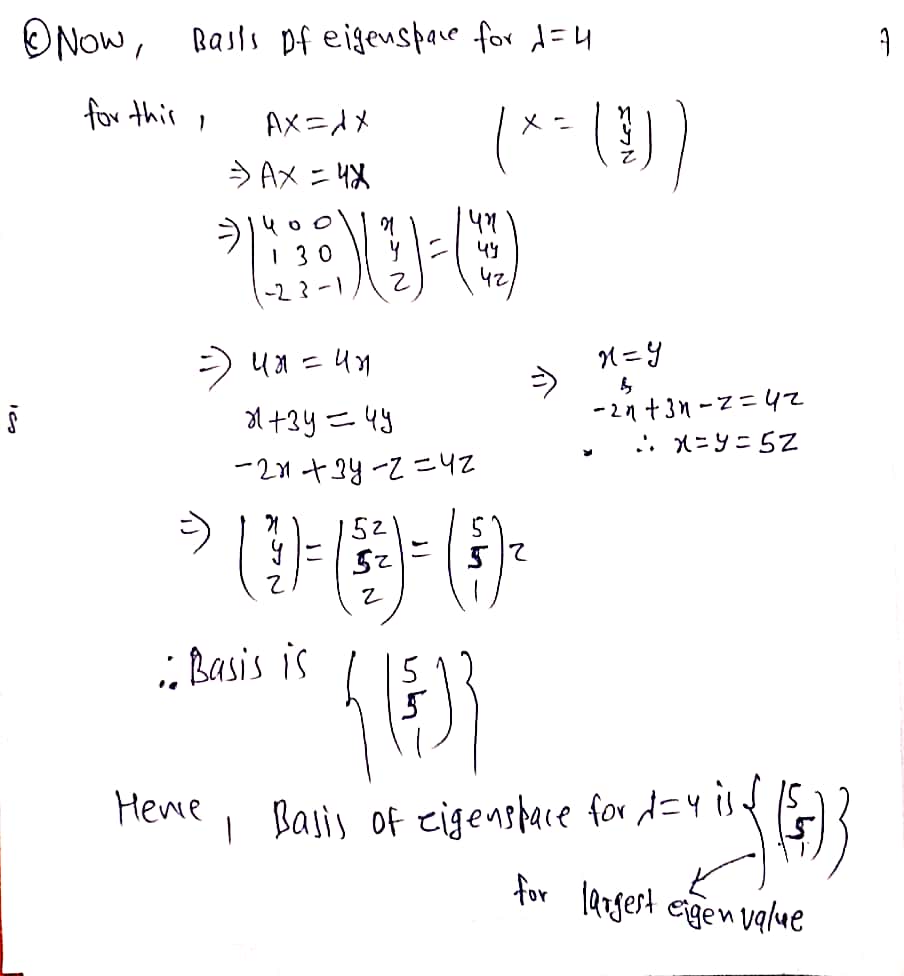 ⓒ Now, Basis of eigenspace for λ=4
for this, AX=λX (X = (x y z))
⇒ AX = 4X
⇒ (4 0 0
1 3 0
-2 3 -1) (x
y
z) = (4x
4y
4z)
⇒ 4x = 4x
x+3y = 4y
-2x+3y-z = 4z
⇒ x=y
&
-2x+3x-z=4z
∴ x=y=5z
⇒ (x
y
z) = (5z
5z
z) = (5
5
1) z
∴ Basis is {(5
5
1)}
Hence, Basis of eigenspace for λ=4 is {(5
5
1)}
for largest eigen value